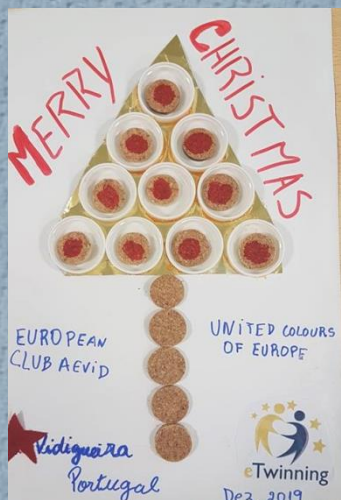 MERRY
CHRISTMAS
EUROPEAN
CLUB AEVID
UNITED COLOURS
OF EUROPE
Vidigueira
Portugal
eTwinning
Dez 2019